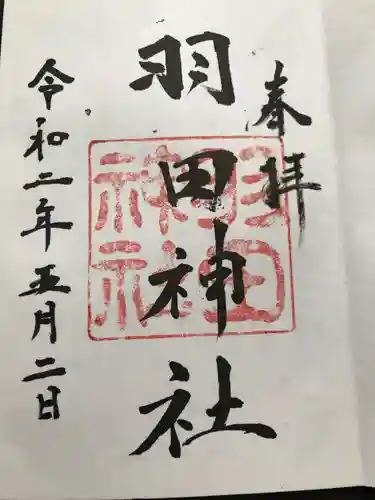 奉拝
羽田神社
羽田
神社
令和二年五月二日